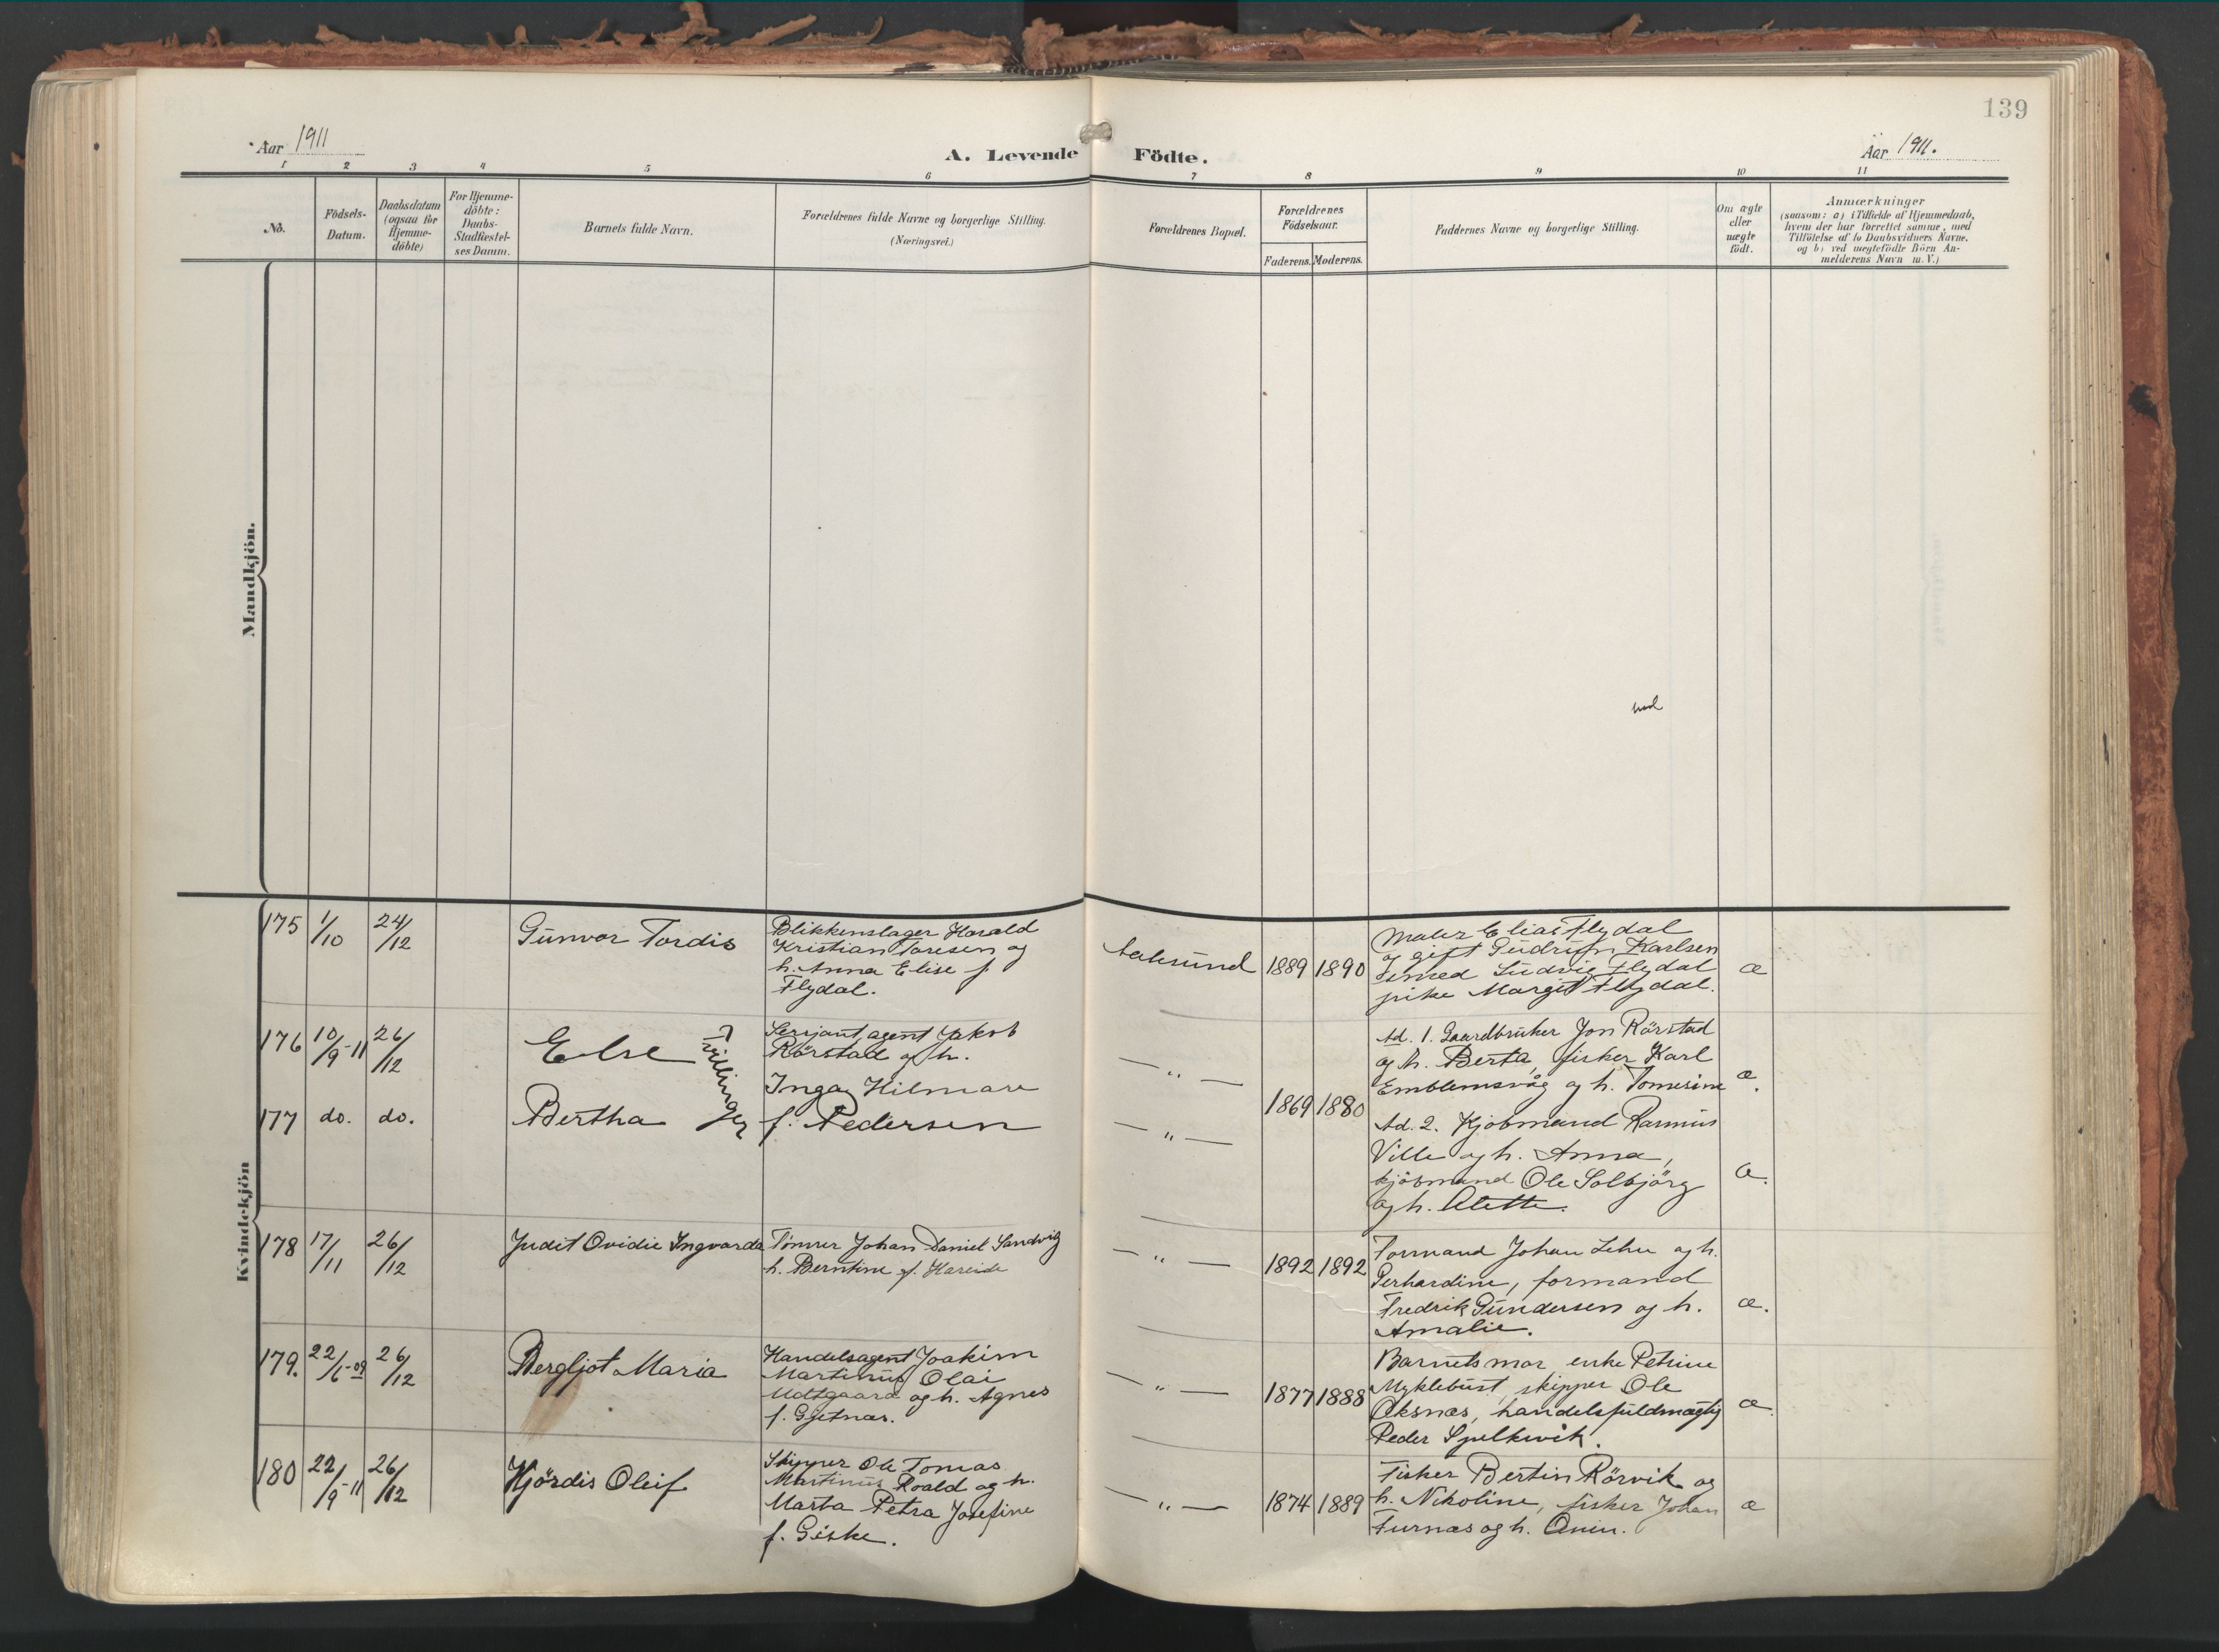 139
Aar 1911
A. Levende Födte.
Aar 1911.
1 2 3 4 5 6 7 8 9 10 11
No.
Födsels-Datum.
Daabsdatum (ogsaa for Hjemme-döbte)
For Hjemme-döbte: Daabs-Stadfæstel-ses Datum.
Barnets fulde Navn.
Forældrenes fulde Navne og borgerlige Stilling.
(Næringsvei.)
Forældrenes Bopæl.
Forældrenes Födselsaar.
Faderens. Moderens.
Faddernes Navne og borgerlige Stilling.
Om ægte eller uægte födt.
Anmærkninger
(saasom: a) i Tilfælde af Hjemmedaab,
hvem der har forrettet samme, med
Tilföielse af to Daabsvidners Navne,
og b) ved uægtefödte Börn An-
melderens Navn m. V.)
Mandkjön.
Kvindekjön
175 1/10 24/12 Gunvor Tordis
Blikkenslager Harald
Kristian Toresen og
h. Anna Elise f
Flydal.
Aalesund 1889 1890
Maler Elias Flydal
og gift Gudrun Karlsen
Ludvig Flydal
pike Margit Flydal.
æ
176 10/9-11 26/12 Else
Tvillinger
Serjant, agent Jakob
Rörstad og h.
Inga Hilmare
f. Pedersen
177 do. do. Bertha
— " —
— " —
1869 1880
Ad. 1. Gaardbruker Jon Rörstad
og h. Berta, fisker Karl
Emblemsvåg og h. Tomesine
æ.
Ad. 2. Kjöbmand Rasmus
Ville og h. Anna,
kjöbmand Ole Solbjörg
og h. Alette.
æ.
178 17/11 26/12 Judit Ovidie Ingvarda
Tömrer Johan Daniel Sandvig
h. Berntine f. Hareide
— " — 1892 1892
Formand Johan Lehn og h.
Perhardine, formand
Fredrik Gundersen og h.
Amalie.
æ.
179. 22/6-09 26/12 Bergljot Maria
Handelsagent Joakim
Martinus Olai
Udtgaard og h. Agnes
f. Gjetnæs.
— " — 1877 1888
Barnets mor, enke Petrine
Myklebust, skipper Ole
Öksnæs, handelsfuldmægtig
Peder Spjelkevik.
æ.
180 22/9-11 26/12 Hjördis Oleif
Skipper Ole Tomas
Martinus Roald og h.
Marta Petra Josefine
f. Giske.
— " — 1874 1889
Fisker Bertin Rörvik og
h. Nikoline, fisker Johan
Furnæs og h.
æ